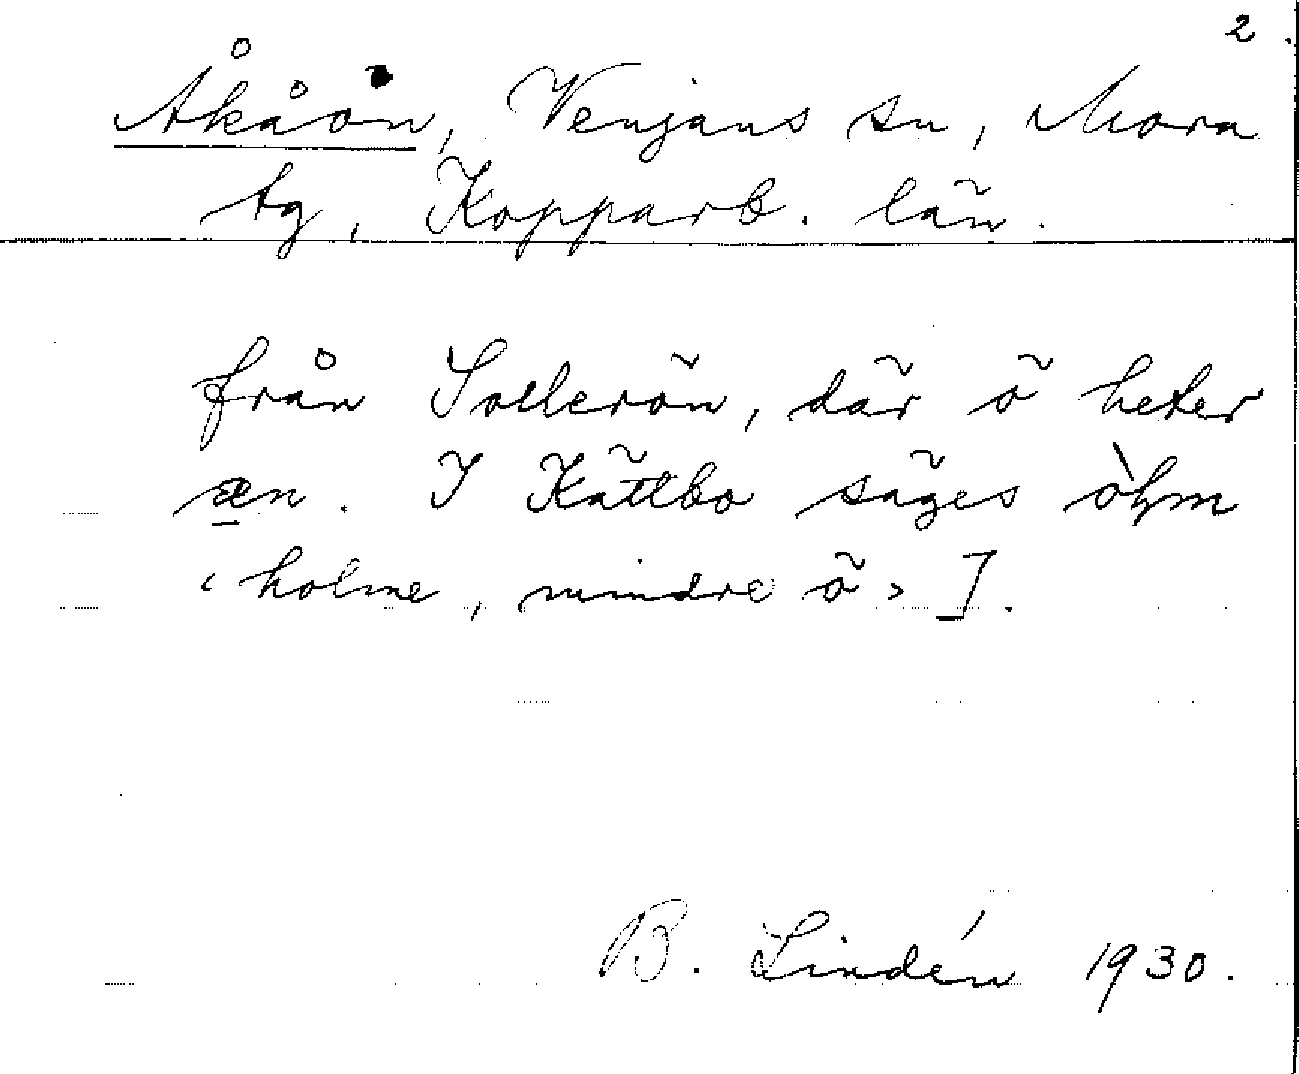 2.
Åkåön, Venjans sn, Mora
tg, Kopparb. län.
från Sollerön, där ö heter
æn. I Kättbo säges
‹holme, mindre ö›].
B. Lindén 1930.